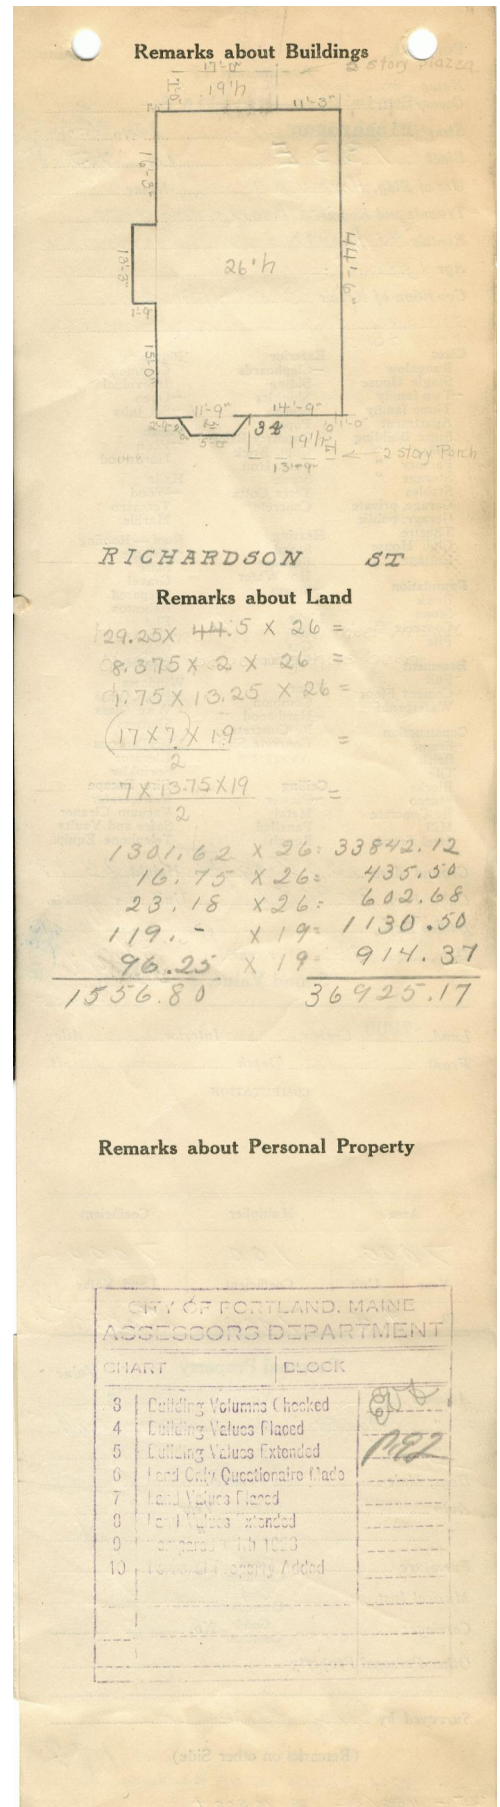 Remarks about Buildings
17'-0"
3 story piazza
7'-0"
19'h
11'-3"
16'-3"
13'-3"
26'h
44'-6"
1'-9"
15'-0"
11'-9"
14'-9"
1'-0"
5'-0"
19'h
2 story Porch
13'-9"
RICHARDSON ST
Remarks about Land
29.25 X 44.5 X 26 =
8.375 X 2 X 26 =
1.75 X 13.25 X 26 =
(17 X 7) X 19 =
2
7 X 13.75 X 19 =
2
1301.62 X 26 = 33842.12
16.75 X 26 = 435.50
23.18 X 26 = 602.68
119.- X 19 = 1130.50
96.25 X 19 = 914.37
1556.80 36925.17
Remarks about Personal Property
CITY OF PORTLAND, MAINE
ASSESSORS DEPARTMENT
CHART BLOCK
3 Building Volumns Checked
4 Building Values Placed
5 Building Values Extended
6 Land Only Questionaire Made
7 Land Values Placed
8 Land Values Extended
9 Compared with
10 Personal Property Added